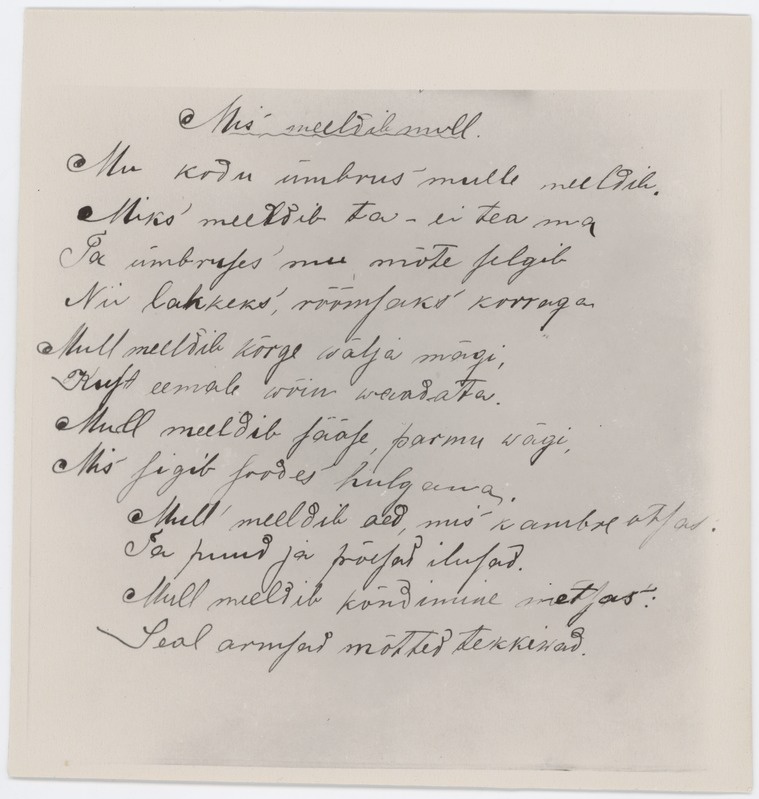 Mis meeldib mull.
Mu kodu ümbrus mulle meeldib.
Miks meeldib ta – ei tea ma
Ta ümbruses mu mõte selgib
Nii lahkeks, rõõmsaks korraga
Mull meeldib kõrge wälja mägi,
Kust eemale wõin waadata.
Mull meeldib sääse, parmu wägi,
Mis sigib soodes hulgana,
Mull meeldib aed, mis kambre otsas:
Ta puud ja põesad ilusad.
Mull meeldib kõndimine metsas:
Seal armsad mõtted tekkiwad.